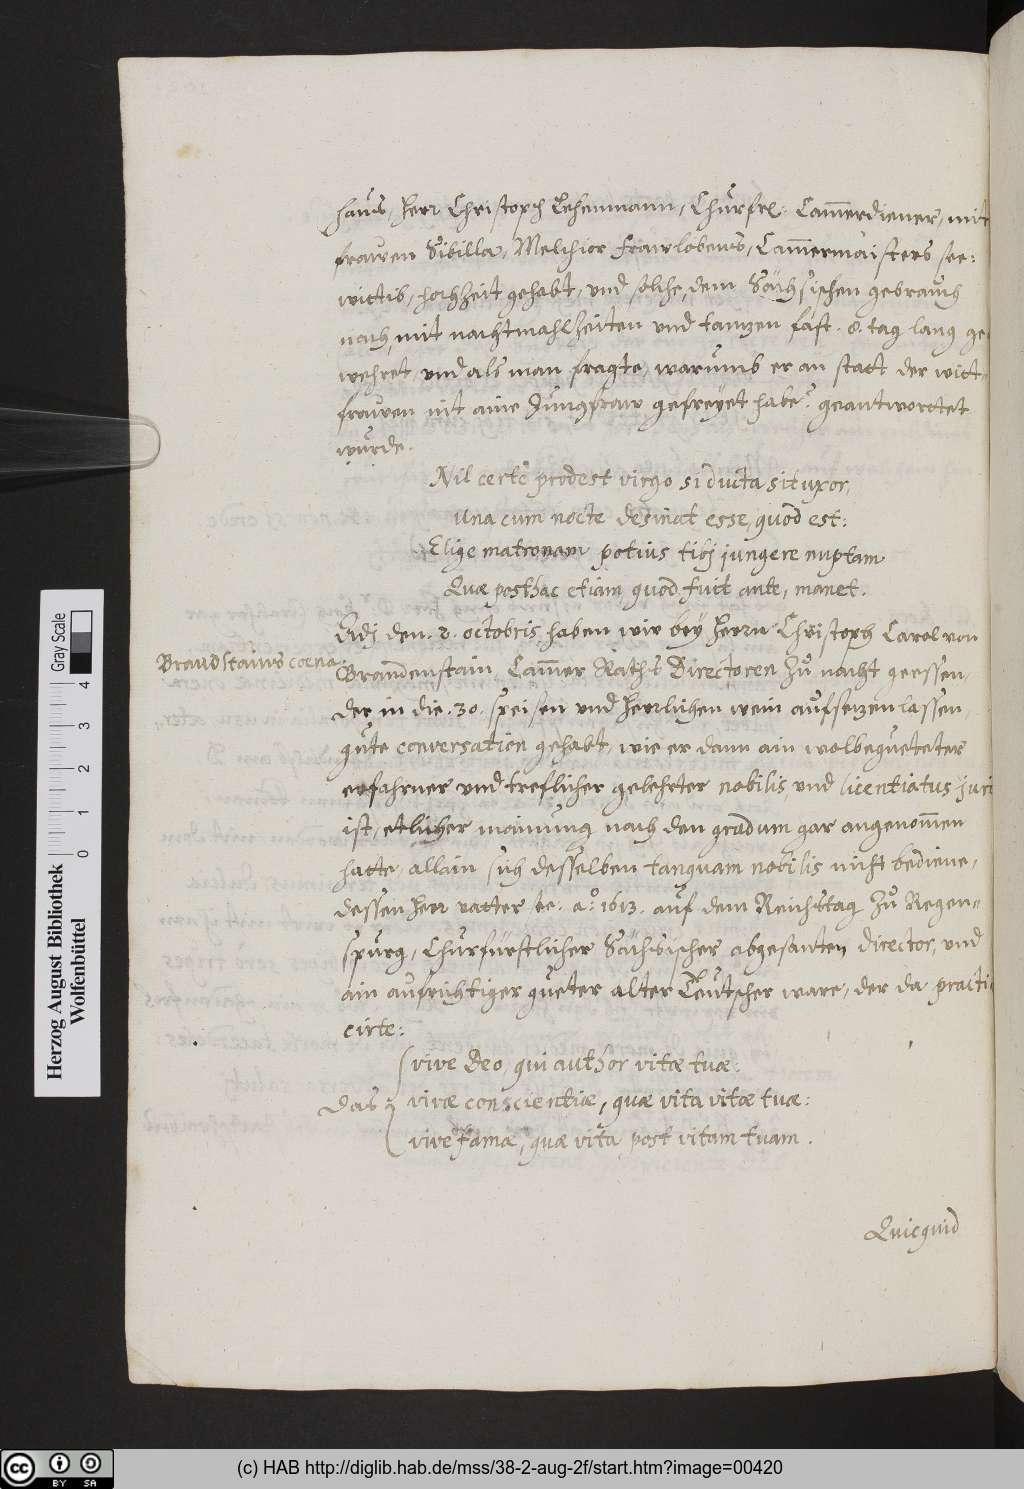 hauß, herr Christoph Lehenmann, Churfrl: Cam̄erdiener, mit
frawen Sibilla, Melchior Frawlobens, Cam̄ermaisters see:
wittib, hochzeit gehabt, und solche, dem Sächsischen gebrauch
nach, mit nachtmahlzeiten und tantzen fast .8. tag lang ge-
wehret, und als man fragte, warumb er an statt der witt-
frawen nit aine Jungfraw gefreyet habe? geantworttet
wurde.
Nil certè prodest virgo si ducta sit uxor,
Una cum nocte desinat esse, quod est:
Elige matronam potius tibj jungere nuptam
Quæ posthac etiam, quod fuit ante, manet.
Adj den .2. octobris, haben wir bey Herrn Christoph Carol von
Brandstains coena.
Brandenstain, Cam̄er Rahts Directoren zu nacht geessen,
der in die .30. speisen und herrlichen wein aufsetzen lassen,
gute conversation gehabt, wie er dann ain wolbegueteter
erfahrner und treflicher gelehrter nobilis, und licentiatus juri
ist, etlicher mainung nach den gradum gar angenom̄en
hatte, allain sich desselben tanquam nobilis nicht bediene,
dessen herr vatter see. a:o 1613. auf dem Reichstag zu Regen-
spurg, Churfürstlicher Sächsischer abgesanten director, und
ain aufrichtiger gueter alter Teutscher ware, der da practi
cirte:
vive Deo, qui author vitæ tuæ:
Das vivæ conscientiæ, quæ vita vitæ tuæ:
vive Famæ, quæ vita post vitam tuam.
Quicquid
Herzog August Bibliothek
Wolfenbüttel
Gray Scale
0 1 2 3 4
CC BY SA
(c) HAB http://diglib.hab.de/mss/38-2-aug-2f/start.htm?image=00420